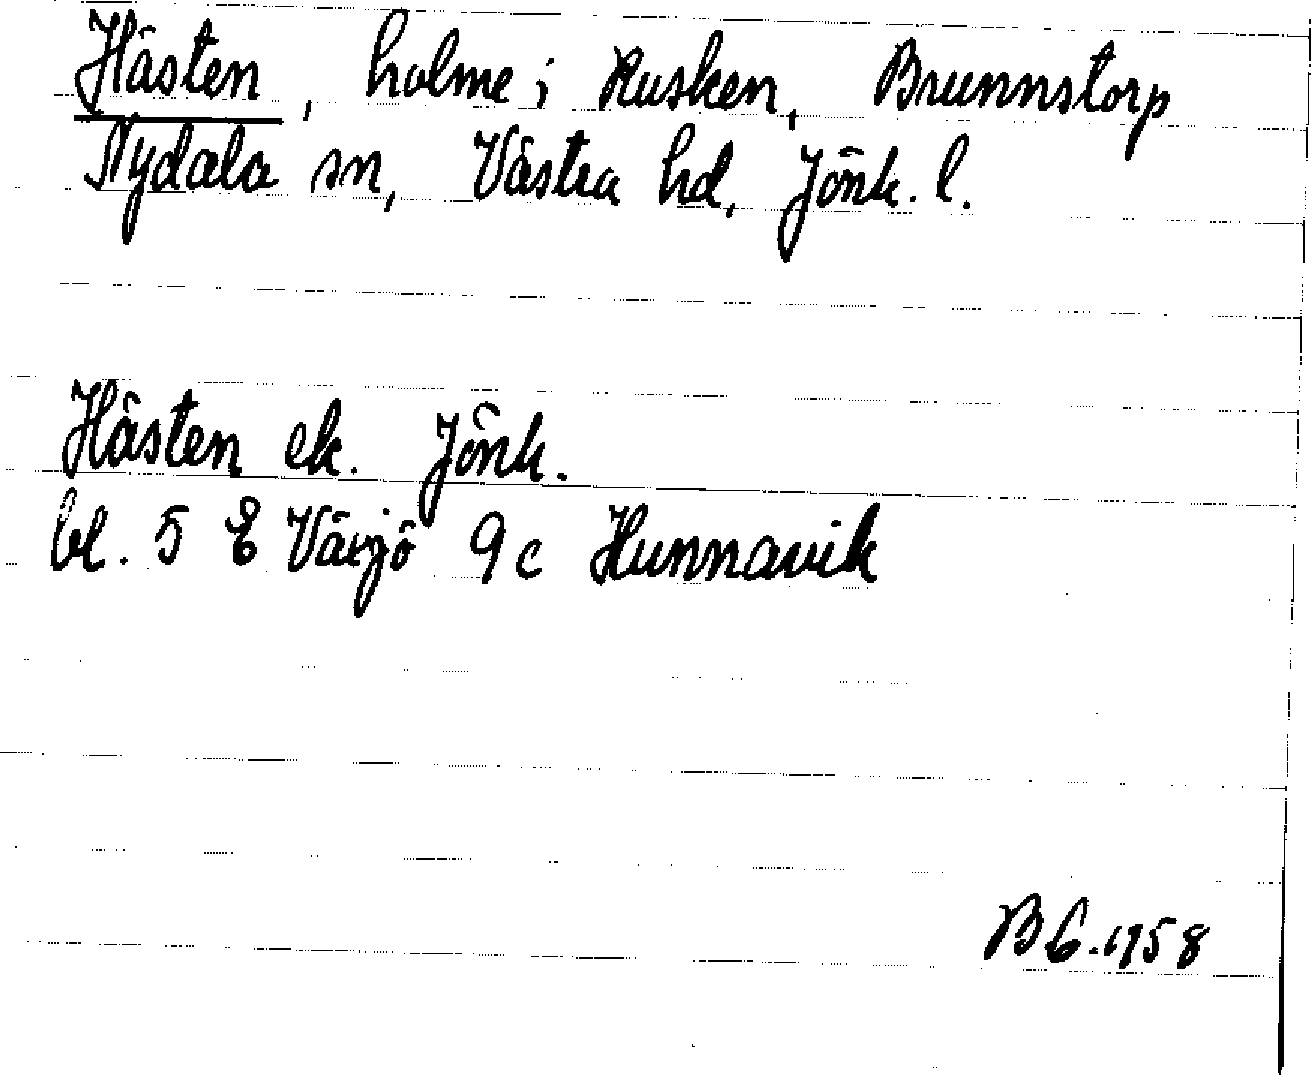 Hästen, holme i Rusken, Brunnstorp
Nydala sn, Västra hd, Jönk. l.
Hästen ek. Jönk.
bl. 5 E Växjö 9c Hunnavik
BG.1958